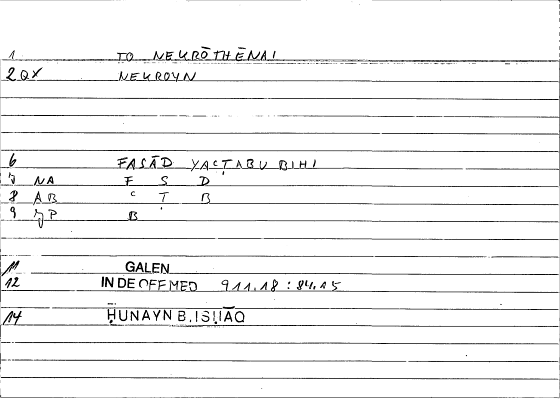 1 TO NEURŌTHĒNAI
2 QX NEUROYN
6 FASĀD YAʿṬABU BIHI
7 NA F S D
8 AB ʿ Ṭ B
9 JP B
11 GALEN
12 IN DE OFF MED 911.18 : 84.15
14 ḤUNAYN B. ISḤĀQ